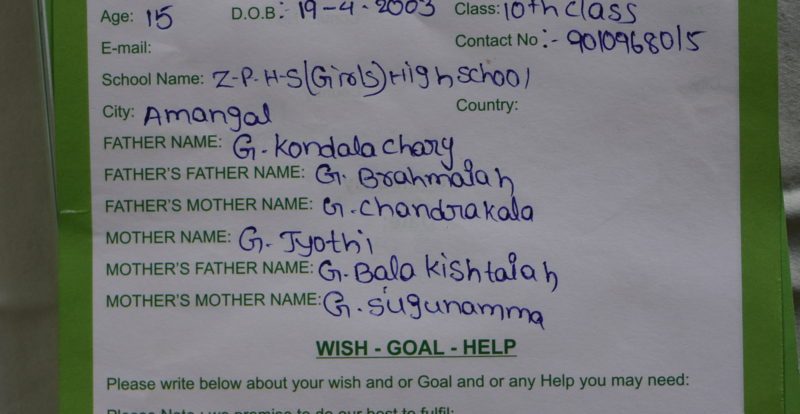 Age: 15 D.O.B: 19-4-2003 Class: 10th class
E-mail: Contact No :- 9010968015
School Name: Z-P-H-S(Girls) High school
City: Amangal Country:
FATHER NAME: G. Kondala chary
FATHER'S FATHER NAME: G. Brahmaiah
FATHER'S MOTHER NAME: G. Chandrakala
MOTHER NAME: G. Jyothi
MOTHER'S FATHER NAME: G. Bala Kishtaiah
MOTHER'S MOTHER NAME: G. Sugunamma
WISH - GOAL - HELP
Please write below about your wish and or Goal and or any Help you may need:
Please Note : we promise to do our best to fulfil: